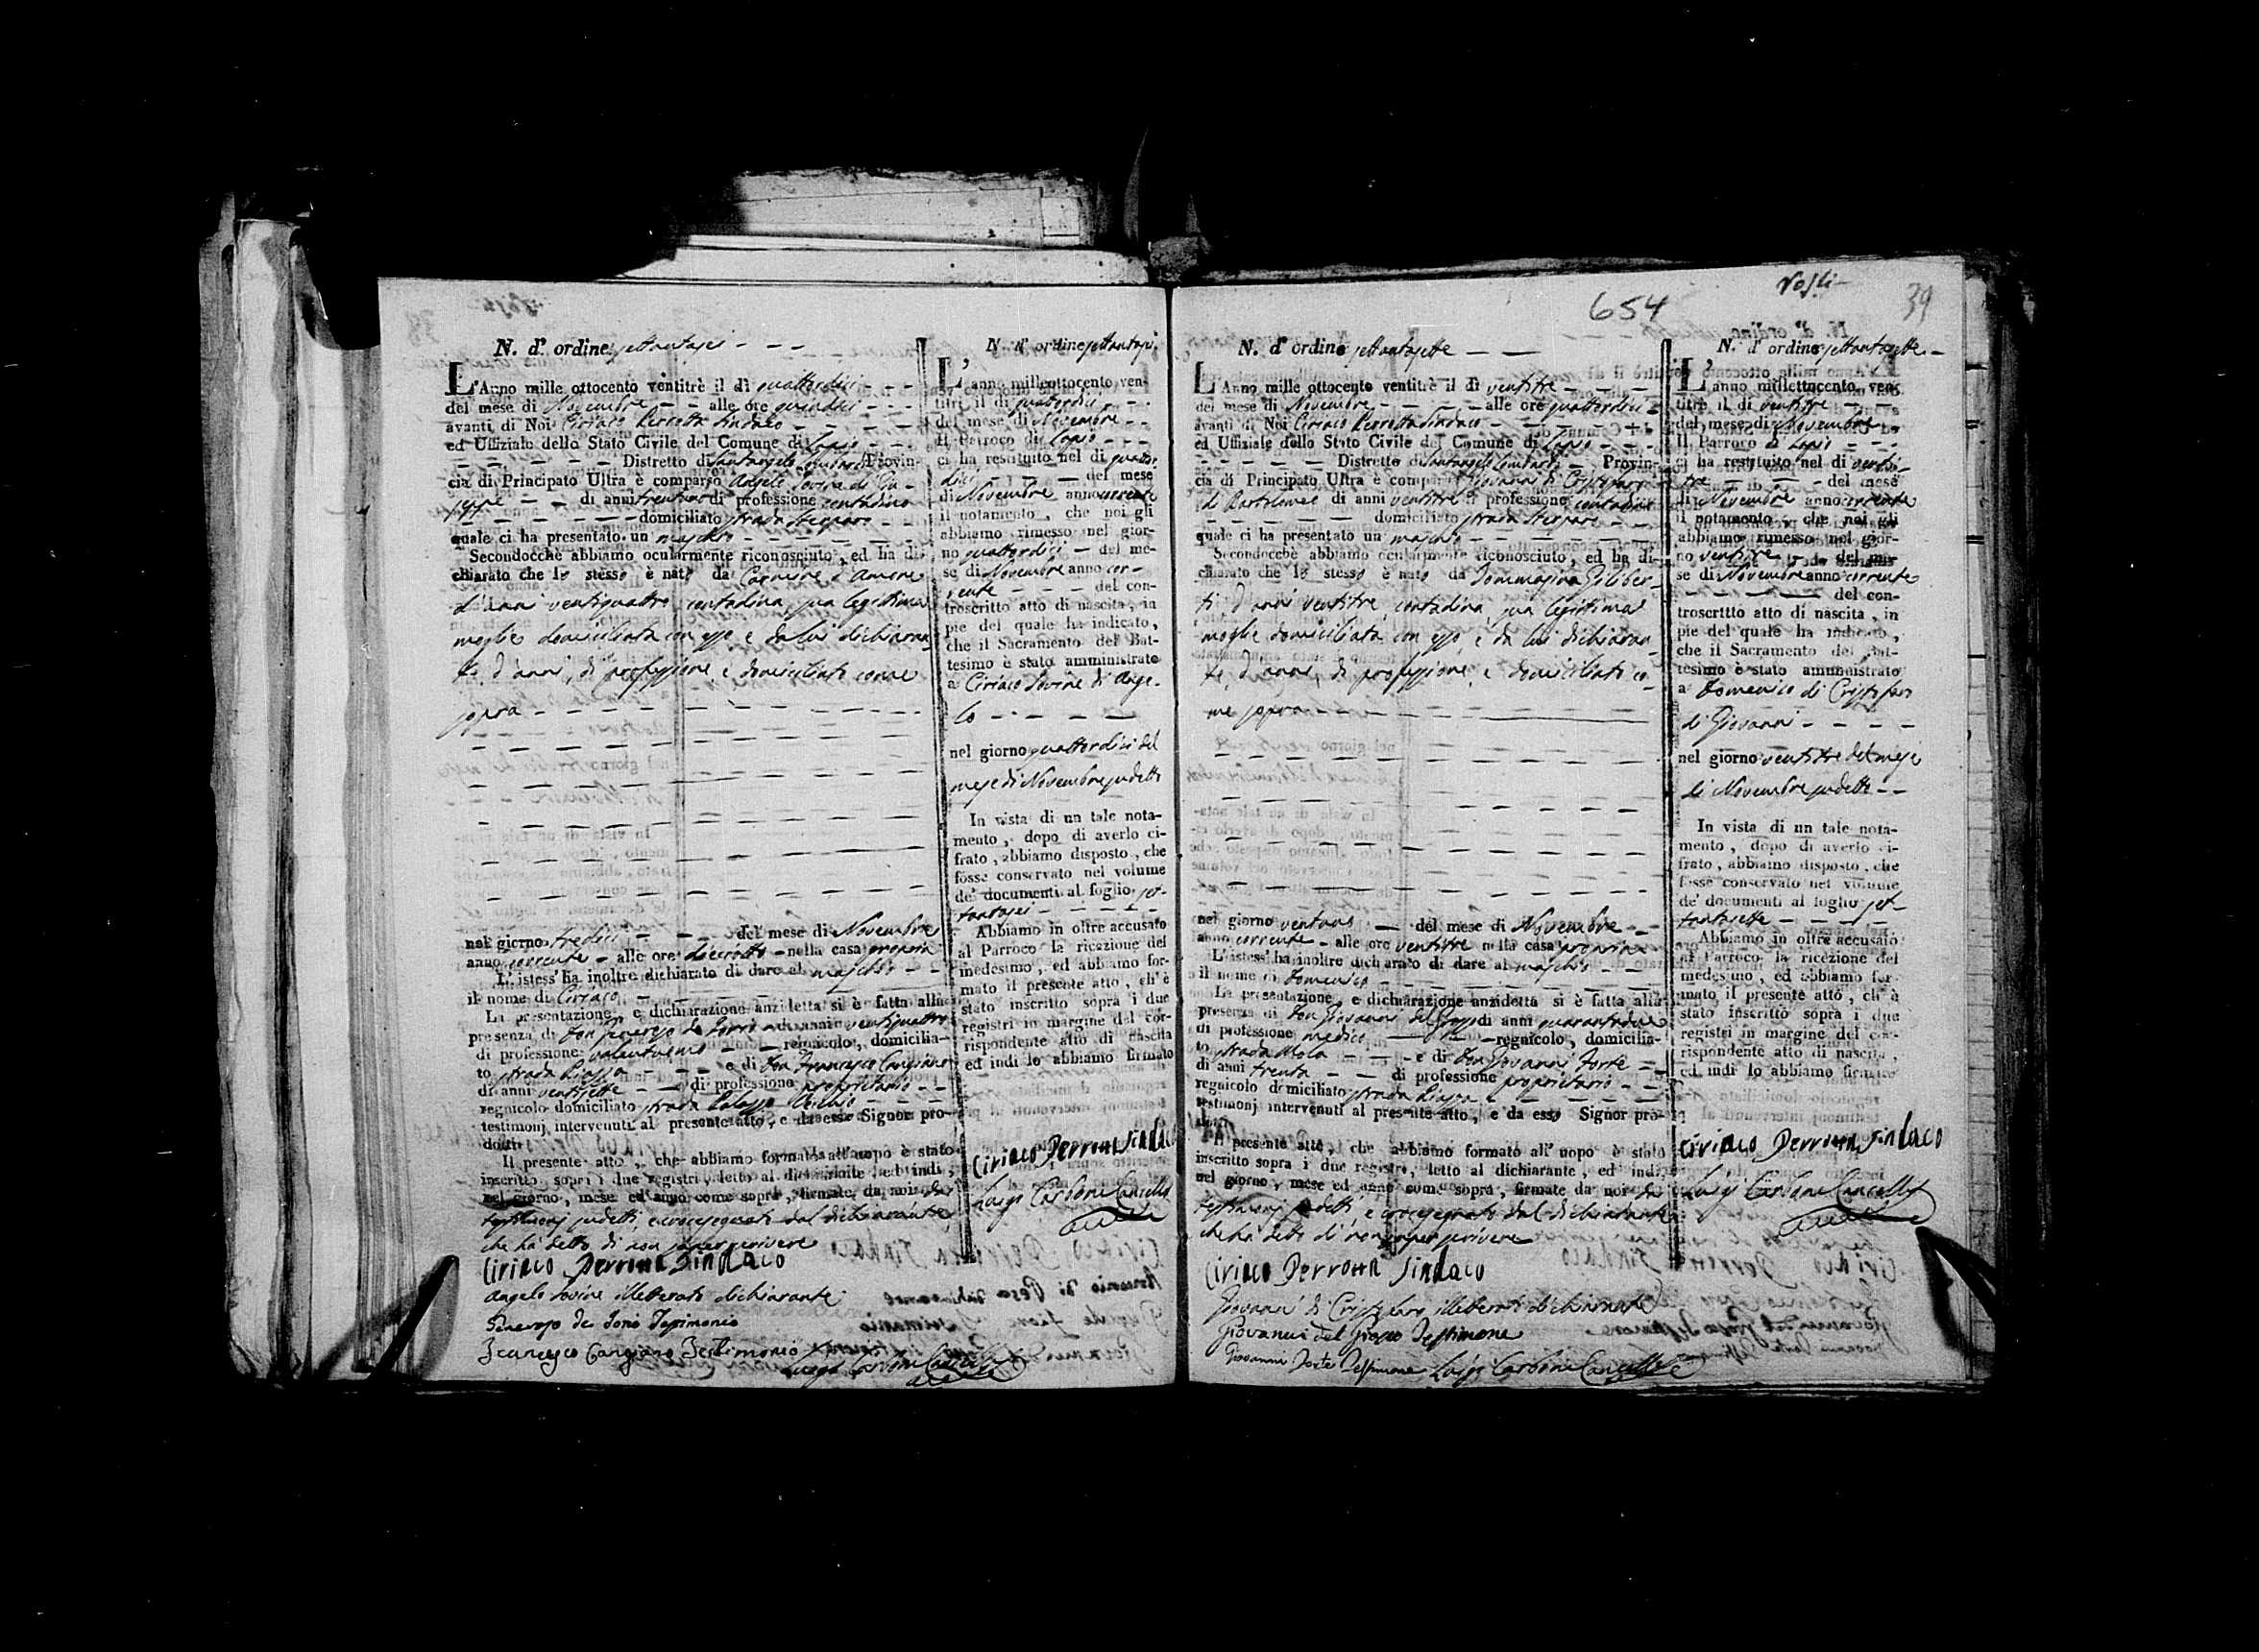 N. d'ordine settantasei
L'Anno mille ottocento ventitrè il dì quattordici
del mese di Novembre alle ore quindici
avanti di Noi Ciriaco Perrotta Sindaco
ed Uffiziale dello Stato Civile del Comune di Lapio
Distretto di Santangelo Lombardi Provin-
cia di Principato Ultra è comparso Angelo Iovine di Giu-
seppe di anni trentuno di professione contadino
domiciliato strada
quale ci ha presentato un maschio
Secondocchè abbiamo ocularmente riconosciuto, ed ha di-
chiarato che lo stesso è nato da Carmine d'Amore
d'anni ventiquattro contadina sua legittima
moglie domiciliata con esso, e da lui dichiaran-
te, d'anni, di professione, e domiciliato come
sopra
nel giorno tredici del mese di Novembre
anno corrente alle ore diciotto nella casa propria
L'istess' ha inoltre dichiarato di dare al maschio
il nome di Ciriaco
La presentazione, e dichiarazione anzidetta si è fatta alla
presenza di Don Generoso de Iorio di anni ventiquattro
di professione galantuomo regnicolo, domicilia-
to strada Piazza e di Don Francesco Cangiano
di anni ventisette di professione proprietario
regnicolo domiciliato strada Palazzo Vecchio
testimonj intervenuti al presente atto, e da esso Signor pro-
dotti
Il presente atto, che abbiamo formato all'uopo è stato
inscritto sopra i due registri, letto al dichiarante, ed indi,
nel giorno, mese ed anno come sopra, firmato da noi da
testimonj sudetti, e crocesegnato dal dichiarante
che ha detto di non saper scrivere
Ciriaco Perrotta Sindaco
Angelo Iovine illetterato dichiarante
Generoso de Iorio Testimonio
Francesco Cangiano Testimonio
Luigi Carbone Cancelliere
N. d'ordine settantasei
L'anno milleottocento ven-
titrè il dì quattordici
del mese di Novembre
Il Parroco di Lapio
ci ha restituito nel dì quattor-
dici del mese
di Novembre anno corrente
il notamento, che noi gli
abbiamo rimesso nel gior-
no quattordici del me-
se di Novembre anno cor-
rente del con-
troscritto atto di nascita, in
pie del quale ha indicato,
che il Sacramento del Bat-
tesimo è stato amministrato
a Ciriaco Iovine di Ange-
lo
nel giorno quattordici del
mese di Novembre sudetto
In vista di un tale nota-
mento, dopo di averlo ci-
frato, abbiamo disposto, che
fosse conservato nel volume
de' documenti al foglio set-
tantasei
Abbiamo in oltre accusato
al Parroco la ricezione del
medesimo, ed abbiamo for-
mato il presente atto, ch'è
stato inscritto sopra i due
registri in margine del cor-
rispondente atto di nascita
ed indi lo abbiamo firmato
Ciriaco Perrotta Sindaco
Luigi Carbone Cancelliere
654
39
N. d'ordine settantasette
L'Anno mille ottocento ventitrè il dì ventitre
del mese di Novembre alle ore quattordici
avanti di Noi Ciriaco Perrotta Sindaco
ed Uffiziale dello Stato Civile del Comune di Lapio
Distretto di Santangelo Lombardi Provin-
cia di Principato Ultra è comparso Giovanni di Cristofaro
di Bartolomeo di anni ventitre di professione contadino
domiciliato strada
quale ci ha presentato un maschio
Secondocchè abbiamo ocularmente riconosciuto, ed ha di-
chiarato che lo stesso è nato da Tommasina Ciliber-
ti, d'anni ventitre contadina, sua legittima
moglie domiciliata con esso, e da lui dichiaran-
te, d'anni, di professione, e domiciliato co-
me sopra
nel giorno ventuno del mese di Novembre
anno corrente alle ore ventitre nella casa propria
L'istess' ha inoltre dichiarato di dare al maschio
il nome di Domenico
La presentazione, e dichiarazione anzidetta si è fatta alla
presenza di Don Giovanni del Grosso di anni quarantadue
di professione medico regnicolo, domicilia-
to strada Mola e di Don Giovanni Forte
di anni trenta di professione proprietario
regnicolo domiciliato strada Piazza
testimonj intervenuti al presente atto, e da esso Signor pro-
dotti
Il presente atto, che abbiamo formato all'uopo è stato
inscritto sopra i due registri, letto al dichiarante, ed indi,
nel giorno, mese ed anno come sopra, firmato da noi da
testimonj sudetti, e crocesegnato dal dichiarante
che ha detto di non saper scrivere
Ciriaco Perrotta Sindaco
Giovanni di Cristofaro illetterato dichiarante
Giovanni del Grosso Testimone
Giovanni Forte Testimone Luigi Carbone Cancelliere
N. d'ordine settantasette
L'anno milleottocento ven-
titrè il dì ventitre
del mese di Novembre
Il Parroco di Lapio
ci ha restituito nel dì venti-
tre del mese
di Novembre anno corrente
il notamento, che noi gli
abbiamo rimesso nel gior-
no ventitre del me-
se di Novembre anno corrente
del con-
troscritto atto di nascita, in
pie del quale ha indicato,
che il Sacramento del Bat-
tesimo è stato amministrato
a Domenico di Cristofaro
di Giovanni
nel giorno ventitre del mese
di Novembre sudetto
In vista di un tale nota-
mento, dopo di averlo ci-
frato, abbiamo disposto, che
fosse conservato nel volume
de' documenti al foglio set-
tantasette
Abbiamo in oltre accusato
al Parroco la ricezione del
medesimo, ed abbiamo for-
mato il presente atto, ch'è
stato inscritto sopra i due
registri in margine del cor-
rispondente atto di nascita,
ed indi lo abbiamo firmato
Ciriaco Perrotta Sindaco
Luigi Carbone Cancelliere